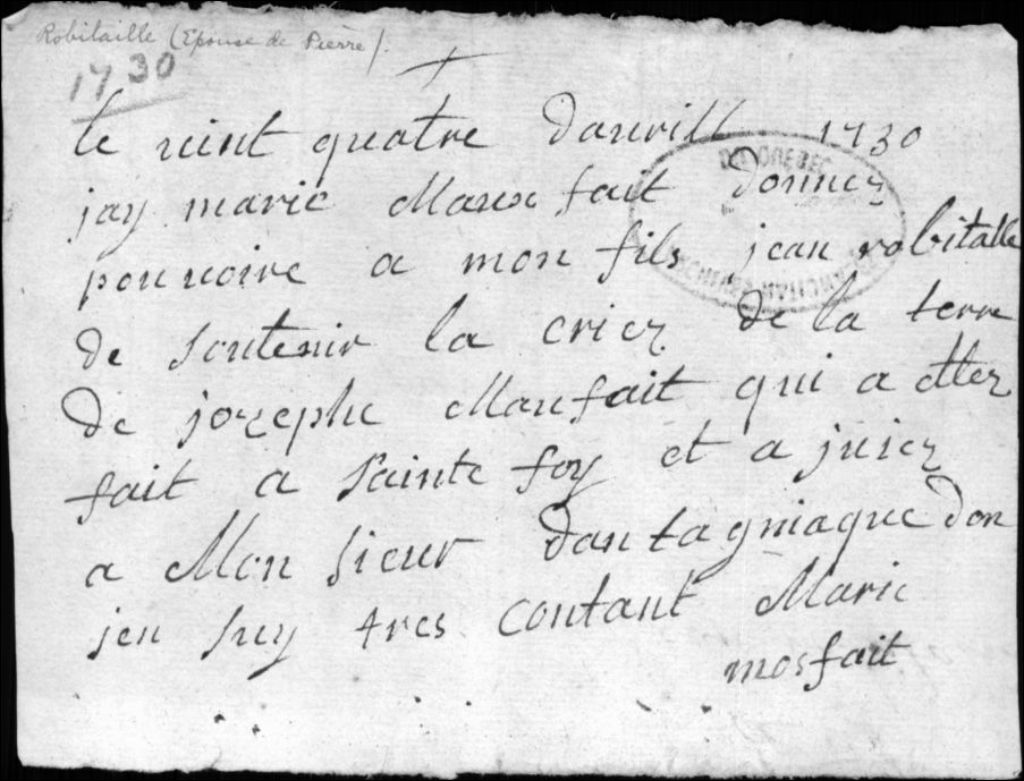 Robitaille (Epouse de Pierre).
1730
le veint quatre dauvrill 1730
jay marie Mauxfait donnez
pouvoire a mon fils jean robitalle
de soutenir la criez de la terre
de jozephe Maufait qui a etez
fait a sainte foy et a juiez
a Mon sieur dautagniaque don
jen suy tres contant Marie
mosfait